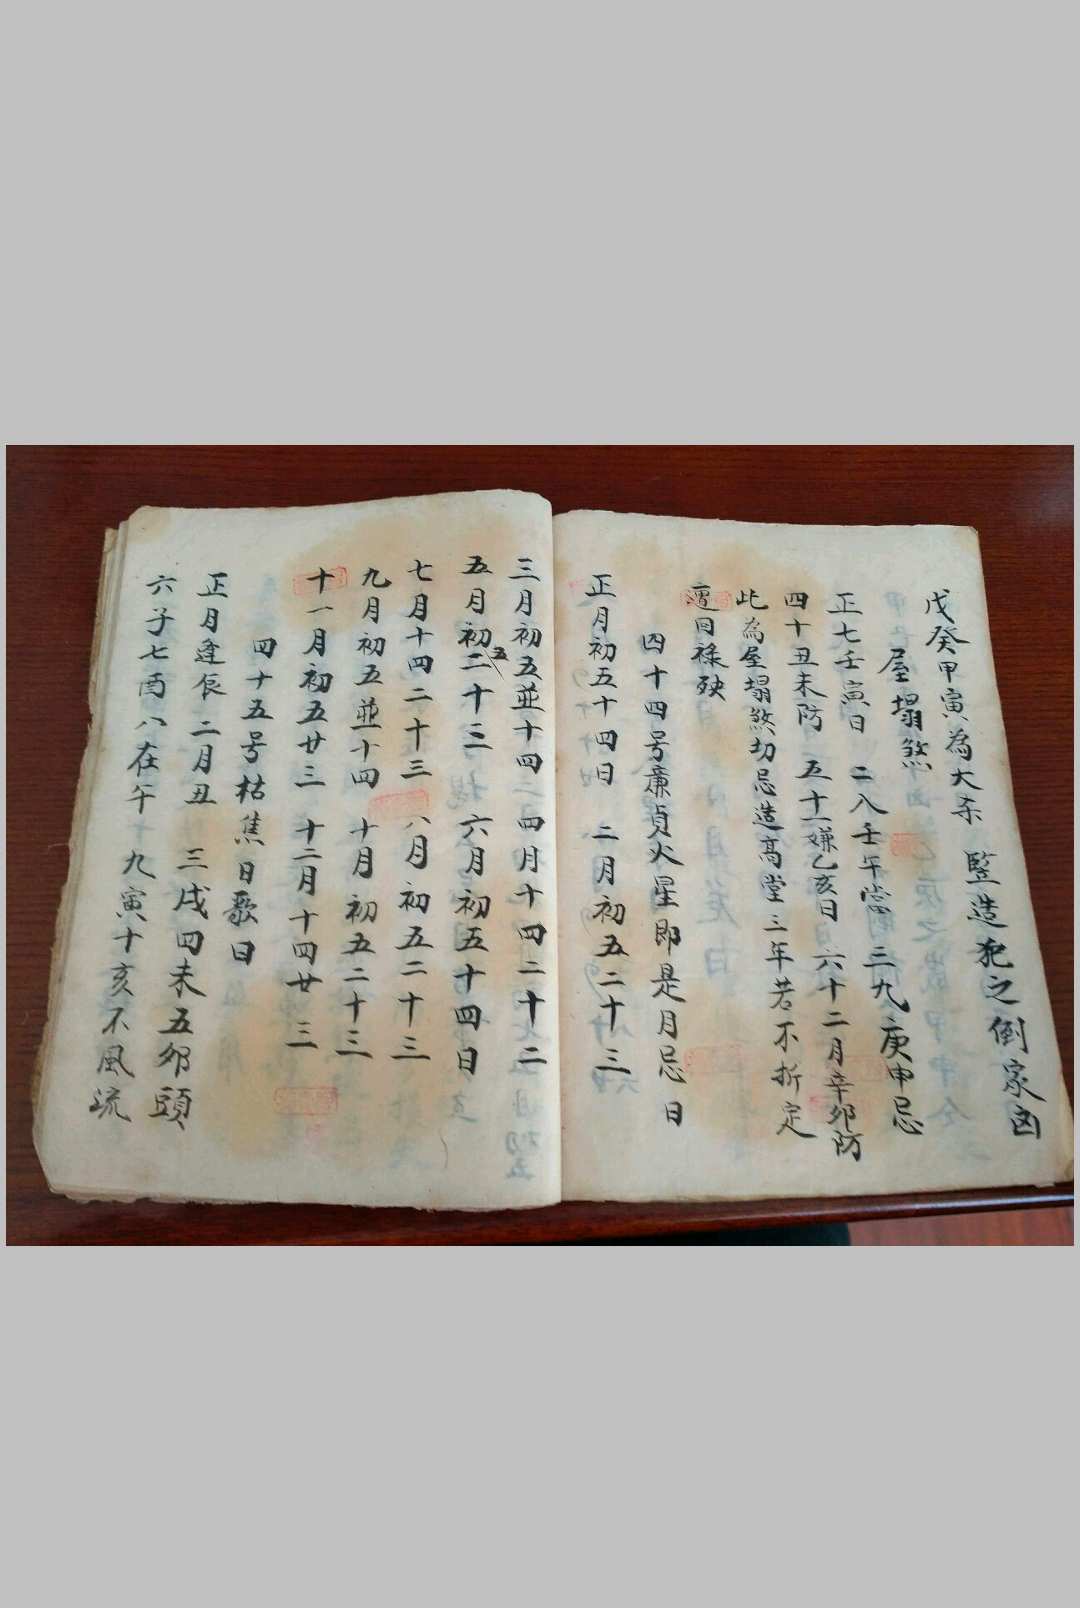 戊癸甲寅為大杀　竪造犯之倒家凶
屋塌煞
正七壬寅日　二八壬午當　三九庚申忌
四十丑未防　五十一嫌乙亥日　六十二月辛卯防
此為屋塌煞切忌造高堂三年若不折定
遭回禄殃
四十四号廉貞火星即是月忌日
正月初五十四日　二月初五二十三
三月初五並十四二　四月十四二十二
五月初五二十三　六月初五十四日
七月十四二十三　八月初五二十三
九月初五並十四　十月初五二十三
十一月初五廿三　十二月十四廿三
四十五号枯焦日歌曰
正月逢辰二月丑　三戌四未五卯頭
六子七酉八在午　九寅十亥不風流